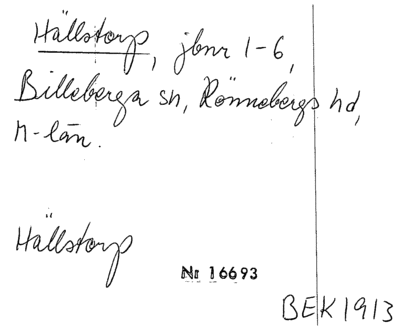 Hällstorp, jbnr 1-6,
Billeberga sn, Rönnebergs hd,
M-län.
Hällstorp
Nr 16693
BEK 1913